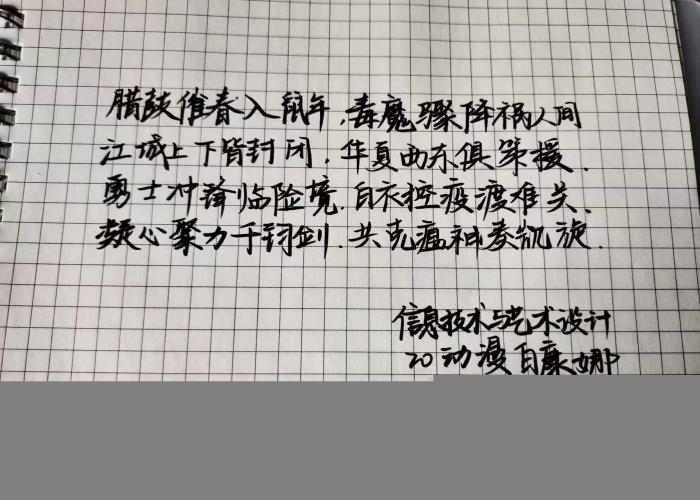 腊鼓催春入鼠年，毒魔骤降祸人间
江城上下皆封闭，华夏西东俱策援．
勇士冲锋临险境．白衣控疫渡难关、
凝心聚力千钧剑．共克瘟神奏凯旋．
信息技术与艺术设计
20动漫白康娜